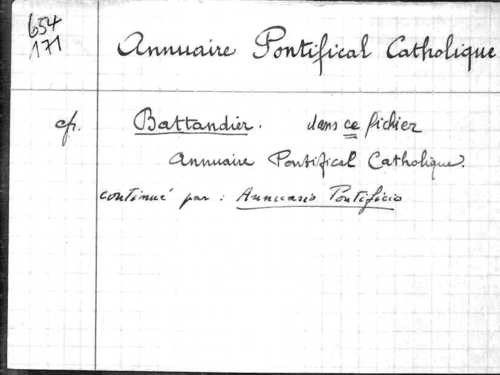 654
171
Annuaire Pontifical Catholique
cfr. Battandier. dans ce fichier
Annuaire Pontifical Catholique.
continué par : Annuario Pontificio